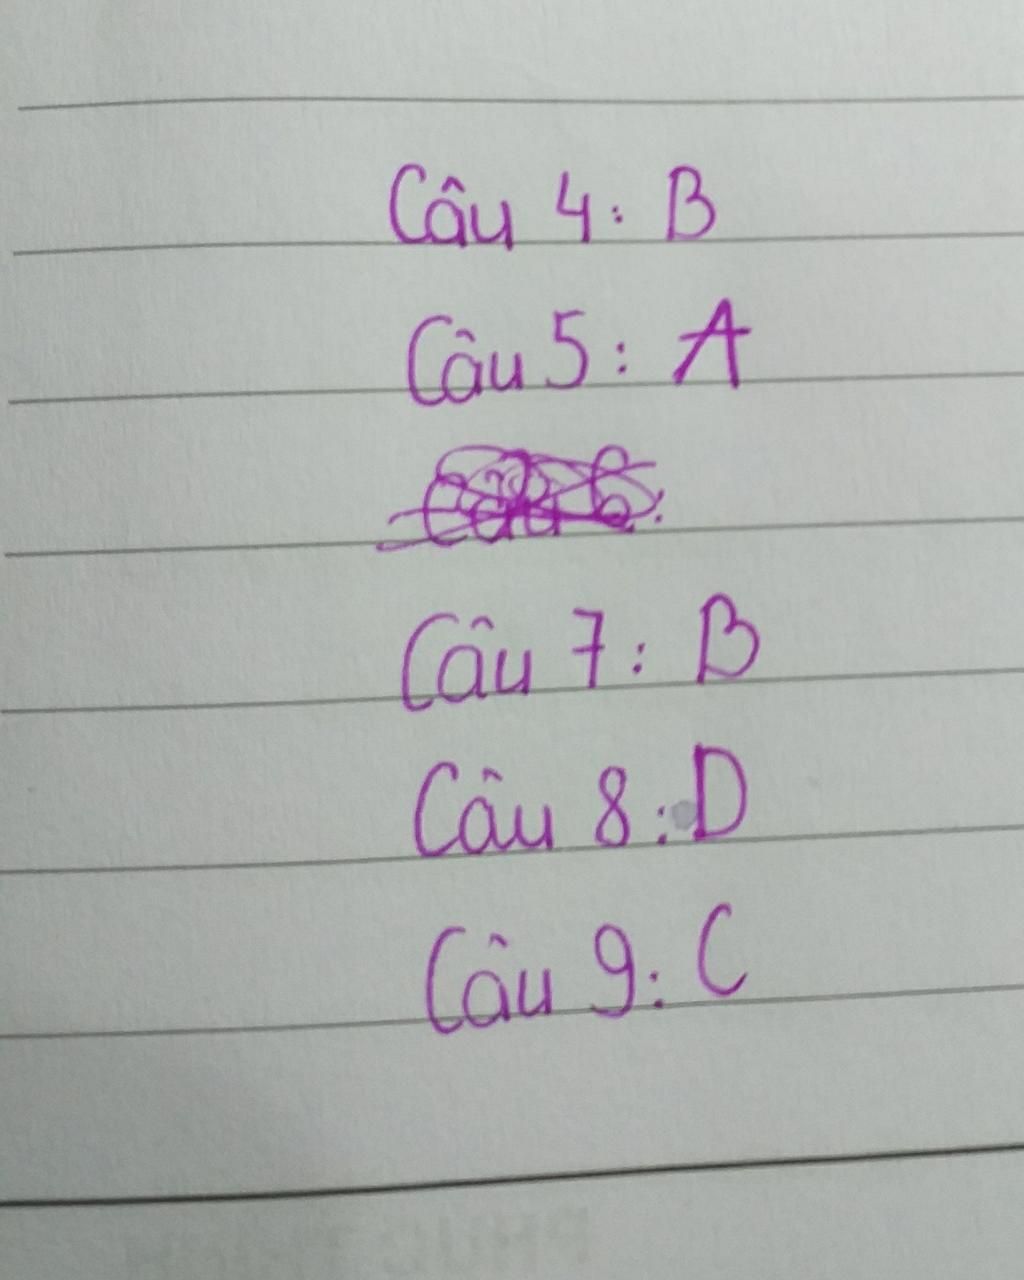 Câu 4: B
Câu 5: A
Câu 7: B
Câu 8: D
Câu 9: C